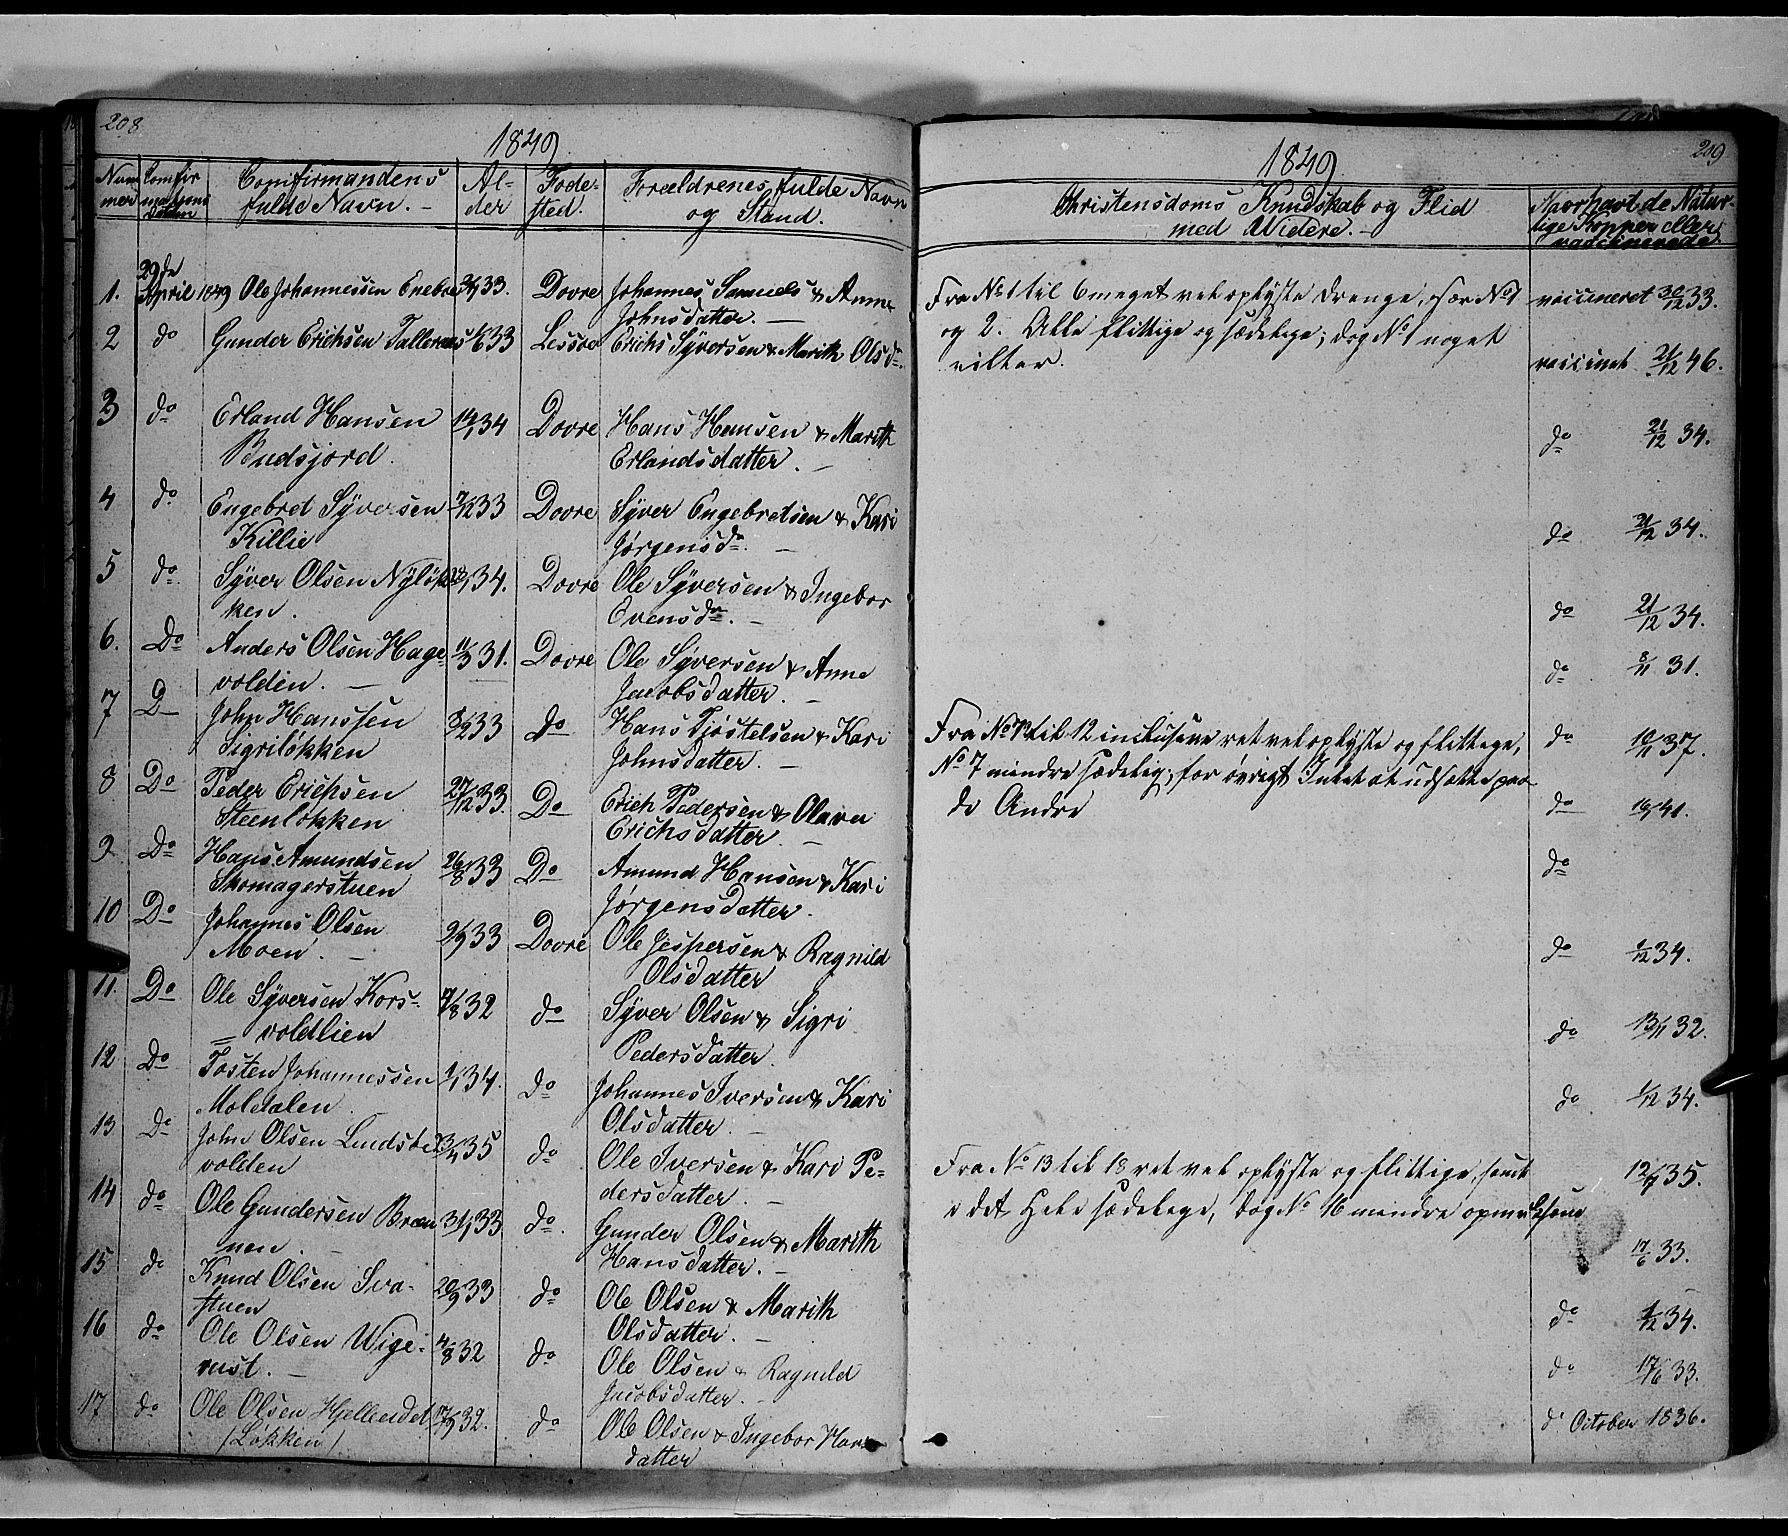 208
1849
Num
mer
Confir
mationsDatum
Confirmandens
fulde Navn. —
Al-
der
Føde-
sted.
Forældrenes fulde Navn
og Stand.
29de
1. April 1849 Ole Johannessen Enebo 33. Dovre Johannes Samuels & Anne
Johnsdatter. —
2 do Gunder Erichsen Talleraas 33 Lessøe Erichs Syversen & Marith Olsd.
3 do Erland Hansen 34 Dovre Hans Hansen & Marith
Budsjord. Erlandsdatter. —
4 do Engebret Syversen 7/12 33 Dovre Syver Engebretsen & Kari
Killie Jørgensdr. —
5 do Syver Olsen Nyløk 34. Dovre Ole Syversen & Ingebor
ken. Evensdr. —
6. Do Anders Olsen Hage- 11/3 31. Dovre Ole Syversen & Anne
volden. — Jacobsdatter. —
7 D John Hanssen 33 do Hans Tjøstelsen & Kari
Sigriløkken Johnsdatter. —
8 Do Peder Erichsen 27/12 33. Do Erich Pedersen & Olava
Steenløkken Erichsdatter. —
9 Do Hans Amundsen 26/8 33 Do Amund Hansen & Kari
Skomagerstuen Jørgensdatter.
10 Do Johannes Olsen 2/9 33 Dovre Ole Jespersen & Ragnild
Moen. — Olsdatter
11. Do Ole Syversen Kors- 32 do Syver Olsen & Sigri
voldlien Pedersdatter.
12 Do Tosten Johannessen 1/1 34. do Johannes Iversen & Kari
Moldalen. Olsdatter. —
13 Do John Olsen Lindsø 35 do Ole Iversen & Kari Pe-
volden dersdatter. —
14 do Ole Gundersen Bræn 33 do. Gunder Olsen & Marith
nen. Hansdatter. —
15 do Knud Olsen Sva- 20/9 33 do Ole Olsen & Marith
stuen Olsdatter. —
16 do Ole Olsen Wige- 32 do Ole Olsen & Ragnild
rust. — Jacobsdatter. —
17 do Ole Olsen Hjellendet 32. do Ole Olsen & Ingebor Han
(Løkken) datter
209
1849
Christensdoms Knudskab og Flid
med Videre. —
Naar havt de Natur-
lige Kopper eller
vaccinerede
Fra No 1 til 6 meget vel oplyste Drenge, især No 1 vaccineret 30/12 33.
og 2. Alle flittige og sædelige; dog No 1 noget
vilter. vaccinet 21/12 46.
do 21/12 34.
do 21/12 34.
do 21/12 34.
do 8/11 31.
Fra No 7 til 12 inclusive ret vel oplyste og flittige, do 10/11 37.
No 7 mindre sædelig; for øvrigt Intet at udsætte paa
de Andre do 41.
do
do 1/12 34.
do 13/11 32.
do 1/12 34.
Fra No 13 til 18 ret vel oplyste og flittige, samt 35.
i det Hele sædelige, dog No 16 mindre opmærksom
17/6 33.
do 1/12 34.
do 17/6 33.
do October 1836.